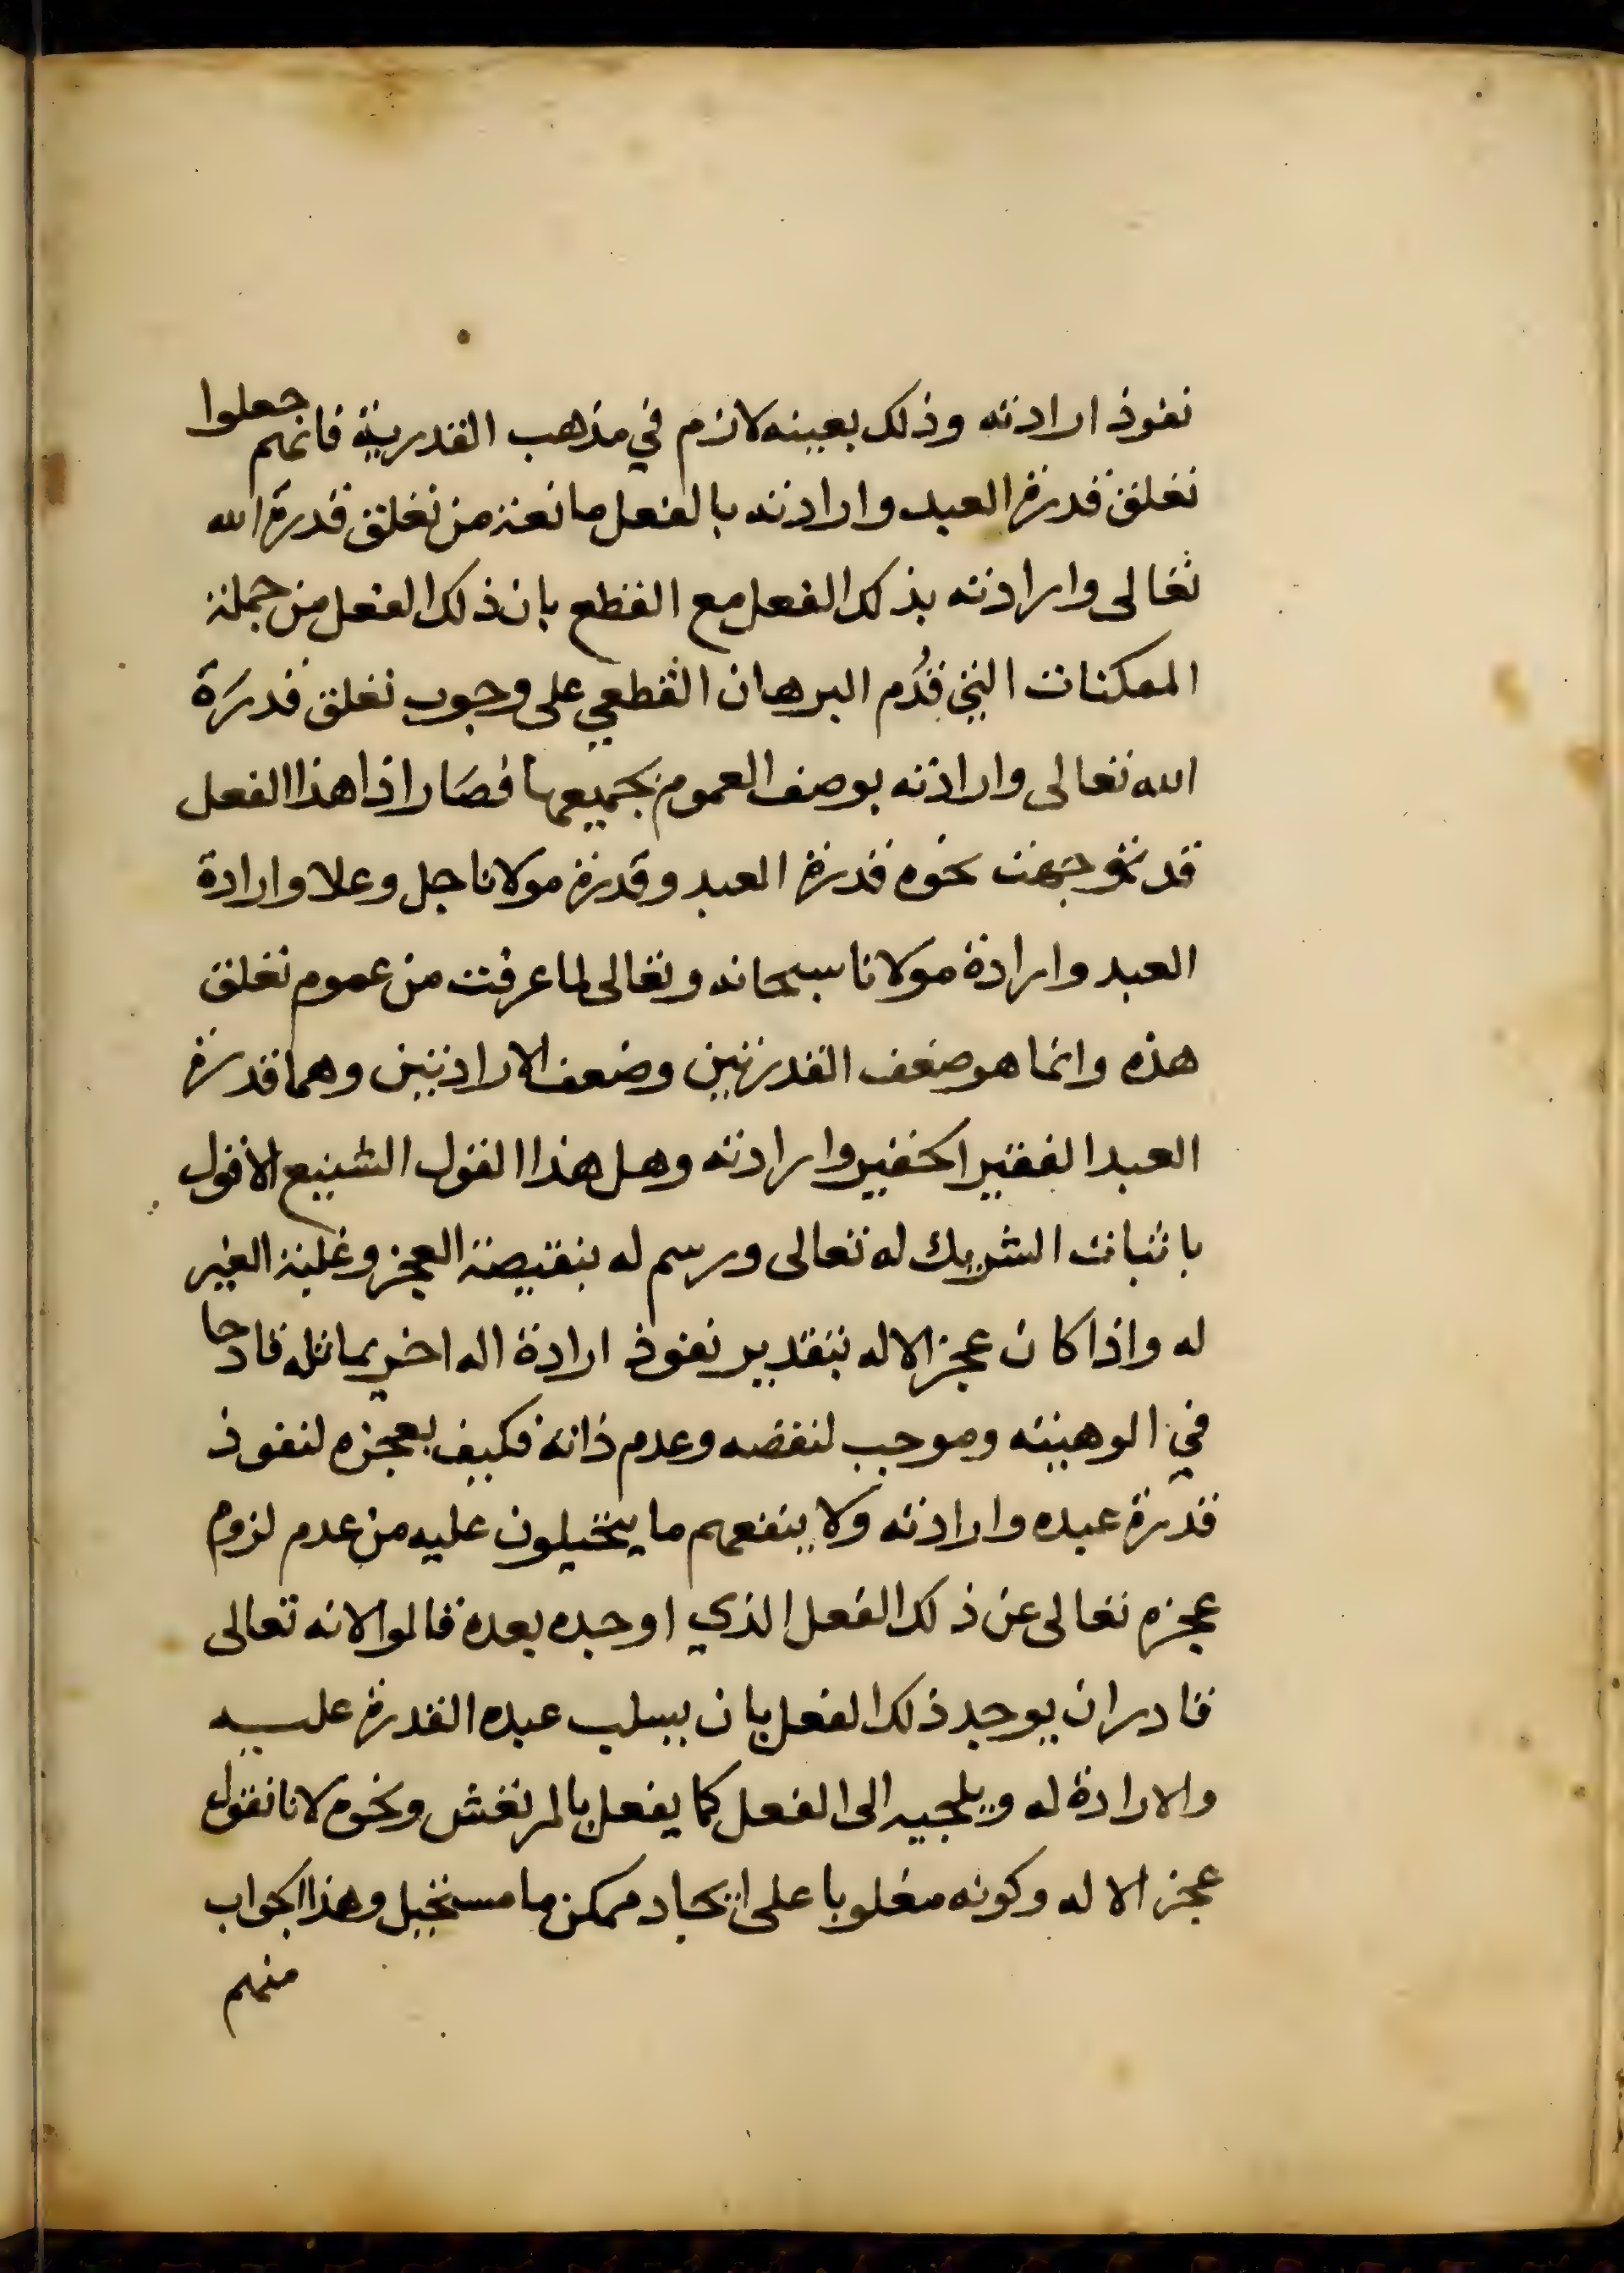 نفوذ ارادته وذلك بعينه لازم في مذهب القدرية فانهم جعلوا
تعلق قدرة العبد وارادته بالفعل مانعة من تعلق قدرة الله
تعالى وارادته بذلك الفعل مع القطع بان ذلك الفعل من جملة
الممكنات التي قدم البرهان القطعي على وجوب تعلق قدرة
الله تعالى وارادته بوصف العموم بجميعها فصار اذا هذا الفعل
قد توجهت نحوه قدرة العبد وقدرة مولانا جل وعلا وارادة
العبد وارادة مولانا سبحانه وتعالى لما عرفت من عموم تعلق
هذه وانما هو ضعف القدرتين وضعف الارادتين وهما قدرة
العبد الفقير الحقير وارادته وهل هذا القول الشنيع الا قول
باثبات الشريك له تعالى ورسم له بنقيصة العجز وغلبة الغير
له واذا كان عجز الاله بتقدير نفوذ ارادة اله اخر يماثله قادحا
في الوهيته وموجب لنقصه وعدم ذاته فكيف بعجزه لنفوذ
قدرة عبده وارادته ولا ينفعهم ما يتحيلون عليه من عدم لزوم
عجزه تعالى عن ذلك الفعل الذي اوجده بعده قالوا لانه تعالى
قادر ان يوجد ذلك الفعل بان يسلب عبده القدرة عليه
والارادة له ويلجيه الى الفعل كما يفعل بالمرتعش ونحوه لانا نقول
عجز الاله وكونه مغلوبا على ايجاد ممكن ما مستحيل وهذا الجواب
منهم